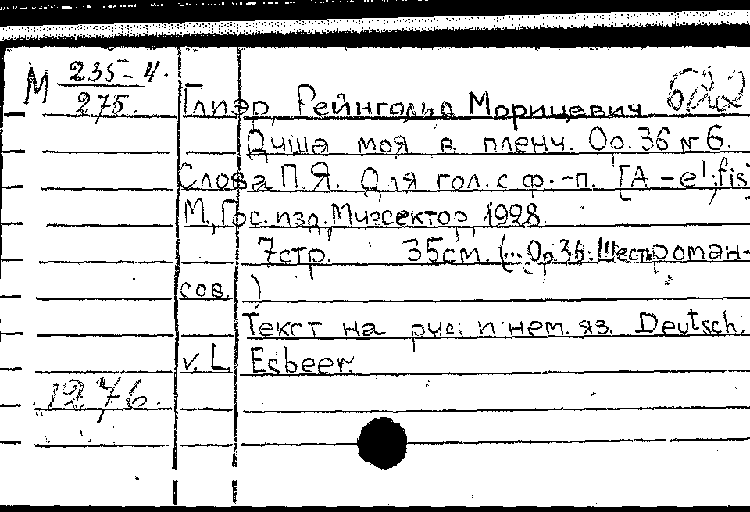 М 235-4.
275.
Глиэр, Рейнгольд Морицевич 622
Душа моя в плену. Ор. 36 № 6.
Слова П.Я. Для гол. с ф.-п. [A-e¹;fis
М., Гос. изд. Музсектор, 1928
7стр. 35см. (...Ор.36. Шесть роман-
сов )
Текст на рус. и нем. яз. Deutsch.
v. L Esbeer.
1276.